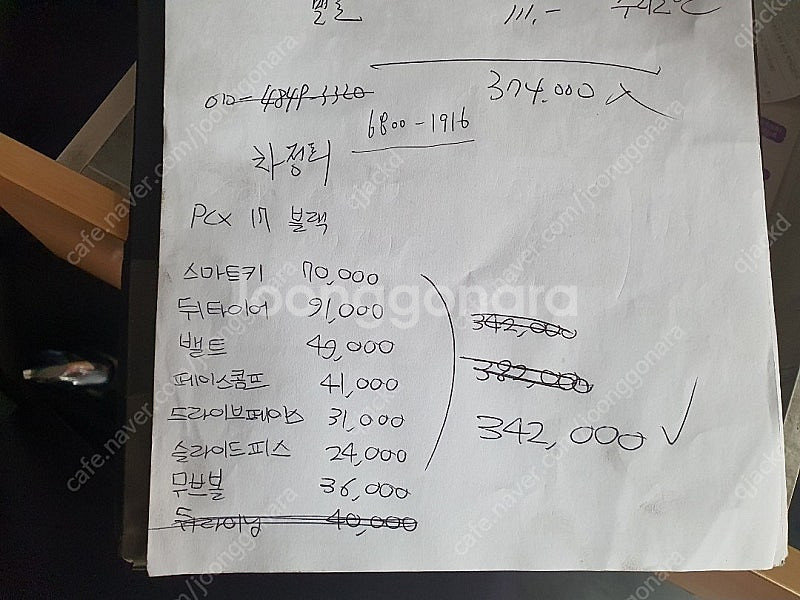 밸트 111.-
374.000 X
010-4849-3320
6800-1916
차정티
PCX 17 블랙
스마트키 70,000
뒤타이어 91,000
밸트 49,000
페이스콤프 41,000
드라이브페이스 31,000
슬라이드피스 24,000
무브볼 36,000
뒤라이닝 40,000
342,000
382,000
342,000 ✓
joonggonara
cafe.naver.com/joonggonara
qjackd